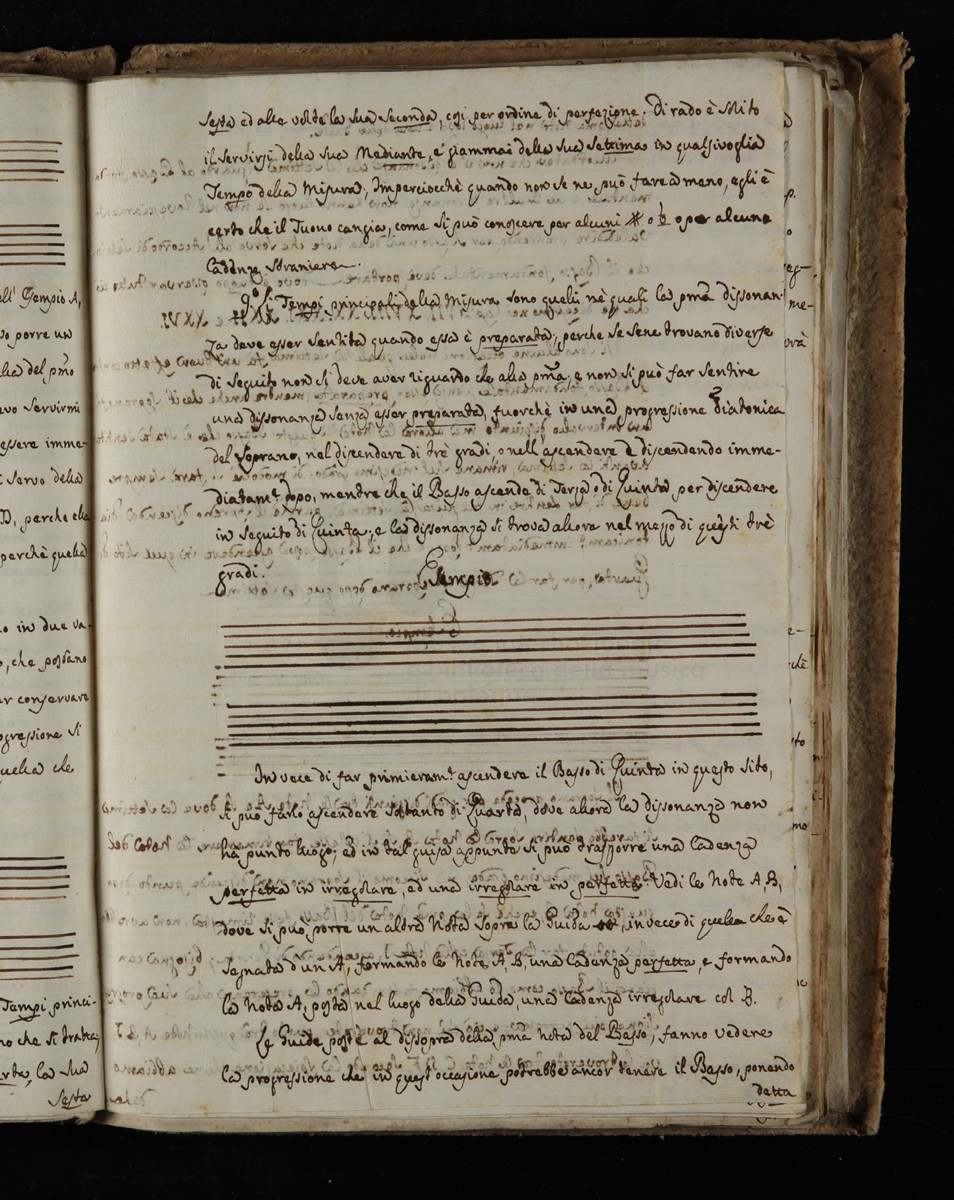 ell'Esempio A,
vo porre un
lia del pmo
evo servirmi
essere imme-
i servo della
D, perche ella
perchè quella
o in due va-
o, che possano
er conservare
ogressione si
uella che
Tempi princi-
no che si tratta;
arta, la sua
Sesta
Sesta ed alle volte la sua seconda, cosi per ordine di perfezione. Di rado è solito
il servirsi della sua Mediante, e giammai della sua Settima in qualsivoglia
Tempo della Misura, Imperciocchè quando non se ne può fare a meno, egli è
certo che il Tuono cangia, come si può conoscere per alcuni ♯ o ♭ o per alcuna
Cadenza straniera.
9.° Li Tempi principali della Misura sono quelli nè quali la pma dissonan-
za deve esser sentita quando essa è preparata; perche se sene trovano diverse
di seguito non si deve aver riguardo che alla pma, e non si può far sentire
una dissonanza senza esser preparata, fuorchè in una progressione diatonica
del Soprano, nel discendere di tre gradi, o nell'ascendere e discendendo imme-
diatam.te dopo, mentre che il Basso ascende di Terza o di Quinta per discendere
in seguito di Quinta, e la dissonanza si trova allora nel mezzo di questi tre
gradi. Esempio.
In vece di far primieram.te ascendere il Basso di Quinta in questo sito,
si può farlo ascendere soltanto di Quarta, dove allora la dissonanza non
ha punto luogo; ed in tal guisa appunto si può trasporre una Cadenza
perfetta in irregolare, ed una irregolare in perfetta. Vedi le Note A, B,
dove si può porre un altra Nota sopra la Guida, in vece di quella che è
segnata d'un A, formando le Note A, B, una Cadenza perfetta, e formando
la Nota A, posta nel luogo della Guida, una Cadenza irregolare col B.
Le Guide poste al dissopra della pma nota del Basso, fanno vedere
la progressione che in quest'occasione potrebbe ancor tenere il Basso, ponendo
detta